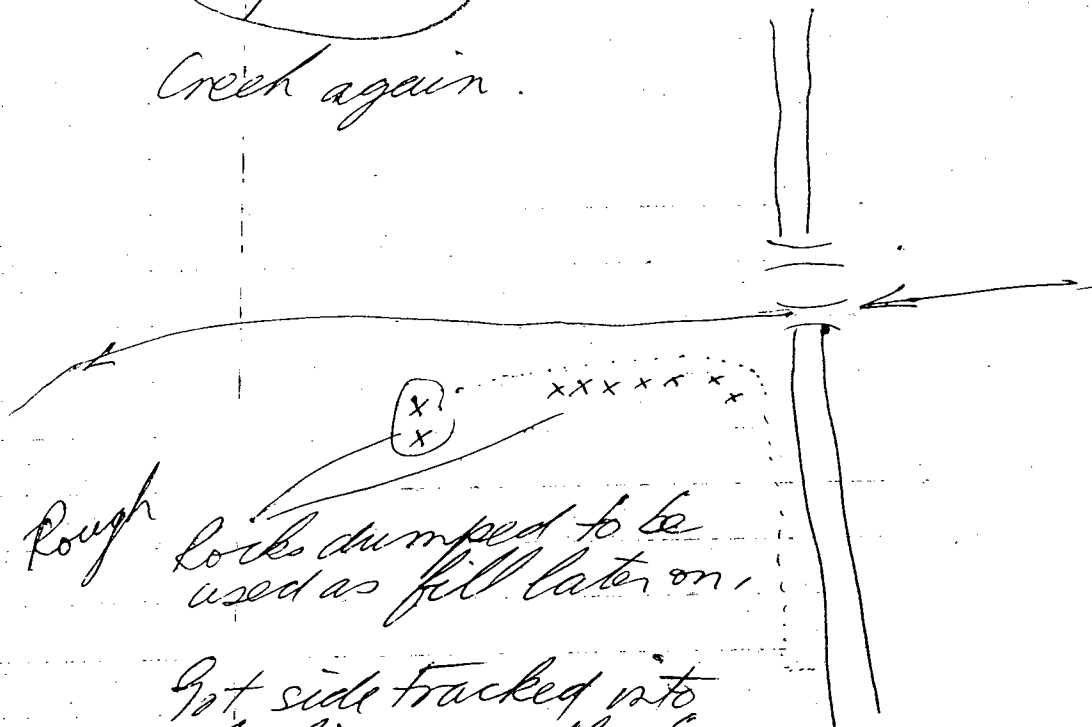 Creek again.
Rough
Rocks dumped to be
used as fill later on,
Got side tracked into